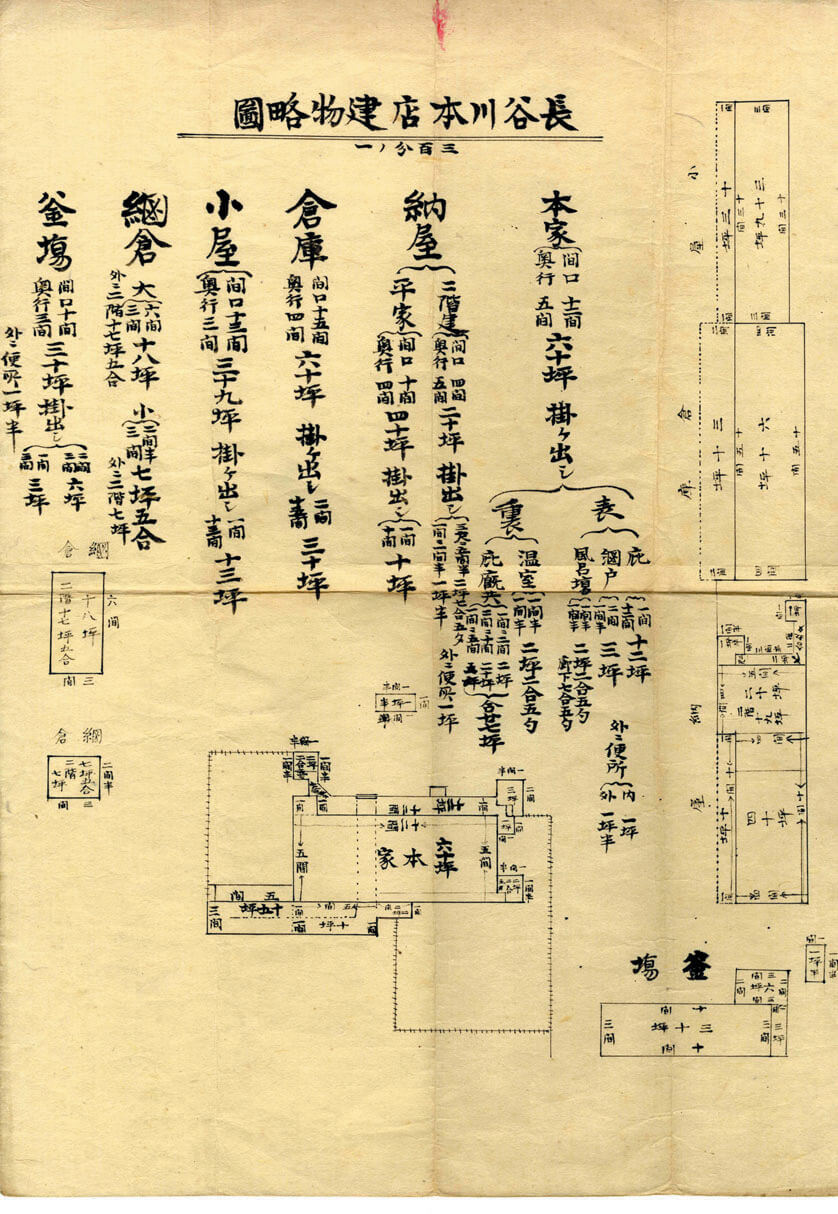 長谷川本店建物略圖
三百分ノ一
本家
間口 十二間
奥行 五間
六十坪 掛ヶ出シ
表
庇 一間 十二間 十二坪
網戸 二間 一間半 三坪
風呂場 一間半 一間半 二坪二合五勺
廊下七合五勺
外ニ便所
内 一坪
外 一坪半
裏
温室 一間半 一間半 二坪二合五勺
納屋
二階建
間口 四間
奥行 五間
二十坪 掛出シ
一間ニ二間半 一坪半
外ニ便所一坪
平家
間口 十間
奥行 四間
四十坪 掛出シ
一間
十間
十坪
倉庫
間口十五間
奥行四間
六十坪 掛ヶ出シ
二間
十五間
三十坪
小屋
間口十三間
奥行三間
三十九坪 掛ヶ出シ
一間
十三間
十三坪
綱倉
大
六間
三間
十八坪
外ニ二階十七坪五合
小
二間半
三間
七坪五合
外ニ二階七坪
釜場
間口十間
奥行三間
三十坪 掛出シ
二間
三間
六坪
一間
三間
三坪
外ニ便所一坪半
小屋
十三坪
十三間
三十九坪
十三間
倉庫
三十坪
十五間
六十坪
十五間
納屋
二十坪
二階十九坪
四十坪
十坪
十間
綱倉
六間
十八坪
二階十七坪五合
三間
綱倉
二間半
七坪五合
二階七坪
三間
本家
六十坪
十二坪
十二間
五間
五間
三坪
五間
十五坪
三間
十坪
釜場
十間
三十坪
十間
三間
三間
六坪
三坪
一坪半